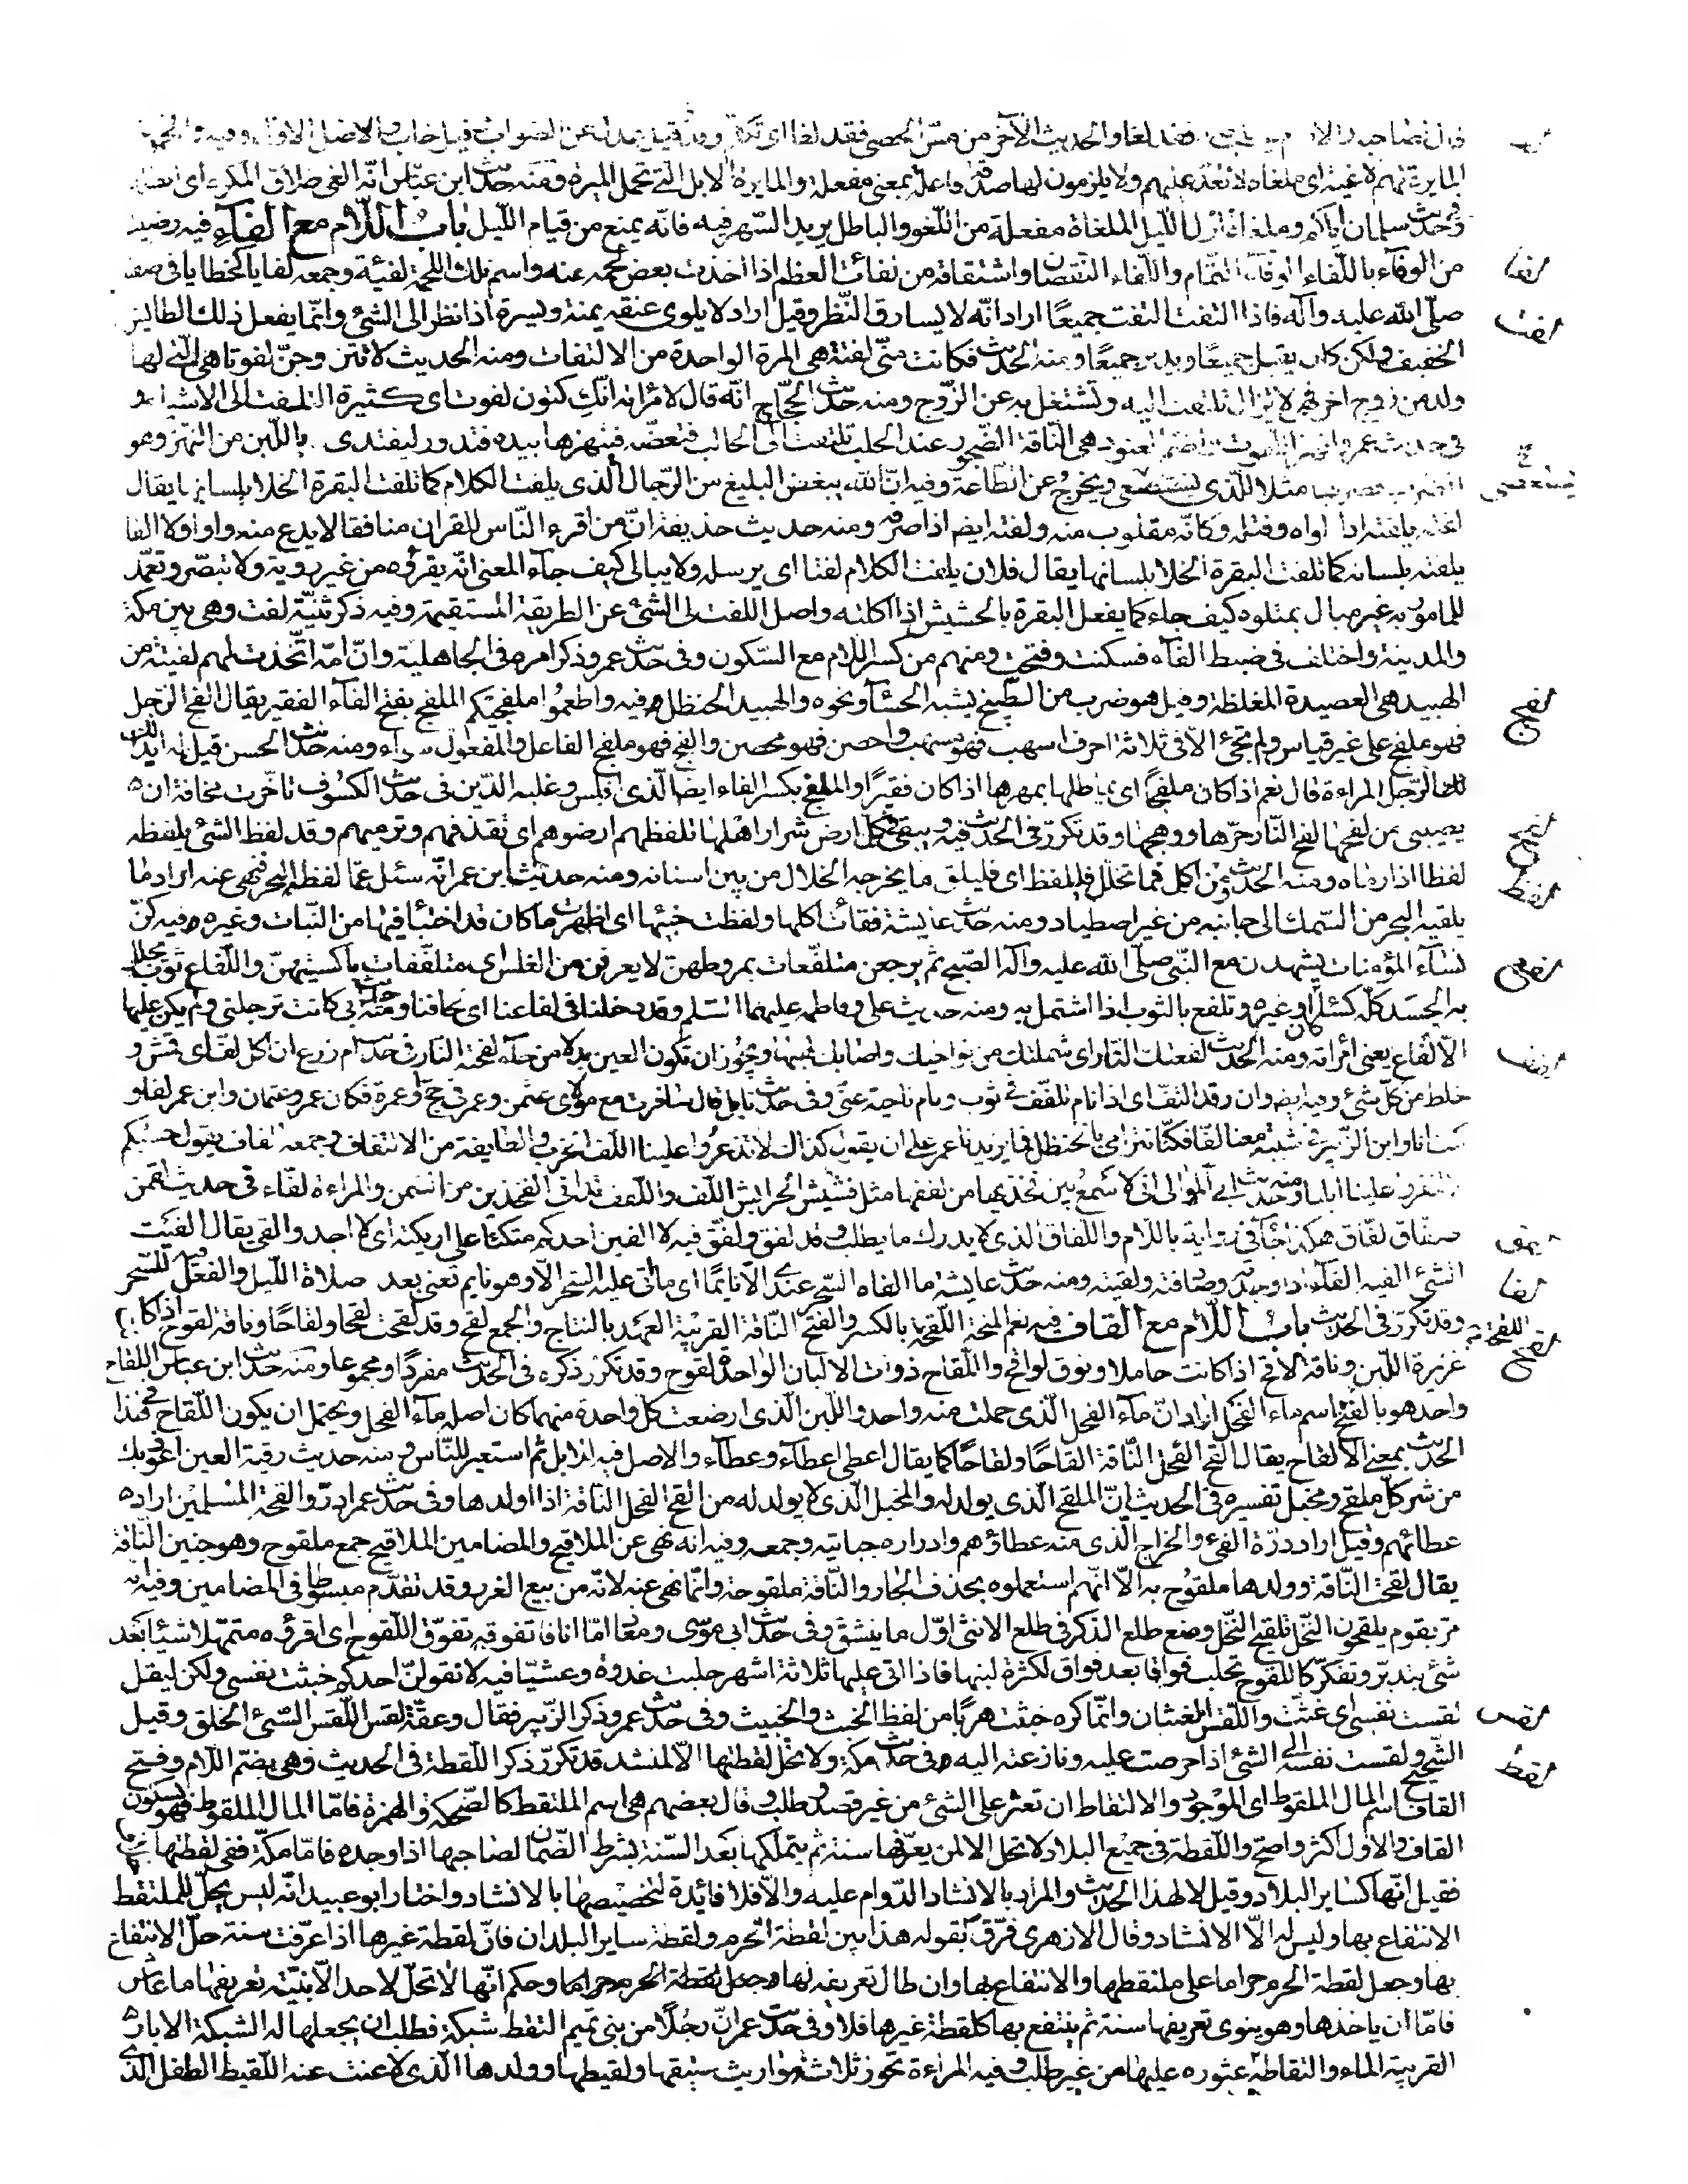 فقد لغا والحديث الآخر من مسّ الحصى فقد لغا اى تكلم وقيل عدل عن الصواب وقيل خاب والاصل الاوّل وفيه والحمولة
المايرة لهم لاغية اى ملغاة لا تعدّ عليهم ولا يلزمون لها صدقة فاعلة بمعنى مفعلة والمايرة الابل التى تحمل الميرة ومنه حديث ابن عبّاس انّه الغى طلاق المكره اى ابطله
وفى حديث سلمان ايّاكم وملغاة اوّل الليل الملغاة مفعلة من اللّغو والباطل يريد السّهر فيه فانّه يمنع من قيام اللّيل باب اللّام مع الفآء فيه رضيت
لفا من الوفآء باللّفاء الوفآء التّمام واللّفاء النّقصان واشتقاقه من لفأت العظم اذا اخذت بعض لحمه عنه واسم تلك اللحمة لفيئة وجمعه لفايا كخطايا فى صفته
لفت صلّى الله عليه وآله فاذا التفت التفت جميعًا اراد انّه لا يسارق النّظر وقيل اراد لا يلوى عنقه يمنة ويسرة اذا نظر الى الشىء وانّما يفعل ذلك الطايش
الخفيف ولكن كان يقبل جميعًا ويدبر جميعًا ومنه الحديث فكانت منّى لفتة هى المرة الواحدة من الالتفات ومنه الحديث لا تتزوجنّ لفوتا هى الّتى لها
ولد من زوج اخر فهى لا تزال تلتفت اليه وتشتغل به عن الزّوج ومنه حديث الحجّاج انّه قال لامرأته انّك كتون لفوت اى كثيرة التلفت الى الاشياء و
فى حديث عمر وانهز اللفوت واضم العنود هى النّاقة الضّجور عند الحلب تلتفت الى الحالب فتعضّه فينهزها بيده فتدور لتفتدى باللّبن من النهز وهو
الضرب فضربها مثلا للّذى يستعصى ويخرج عن الطّاعة وفيه انّ الله يبغض البليغ من الرّجال الّذى يلفت الكلام كما تلفت البقرة الخلا بلسانها يقال
لفته يلفته اذا لواه وفتله وكانّه مقلوب منه ولفته ايضا اذا صرفه ومنه حديث حذيفة انّ من اقرء النّاس للقران منافقا لا يدع منه واوا ولا الفا
يلفته بلسانه كما تلفت البقرة الخلا بلسانها يقال فلان يلفت الكلام لفتا اى يرسله ولا يبالى كيف جآء المعنى انّه يقرؤه من غير رويّة ولا تبصّر وتعمّد
للمامور به غير مبال بمتلوه كيف جاء كما يفعل البقرة بالحشيش اذا اكلته واصل اللفت لىّ الشىء عن الطريقة المستقيمة وفيه ذكر ثنيّة لفت وهى بين مكة
والمدينة واختلف فى ضبط الفآء فسكنت وفتحت ومنهم من كسر اللام مع السّكون وفى حديث عمر وذكر امره فى الجاهلية وانّ امّه اتّخذت لهم لفيتة من
الهبيد هى العصيدة المغلظة وقيل هو ضرب من الطّبيخ يشبه الحسآء ونحوه والهبيد الحنظل
لفج وفيه واطعموا ملفجيكم الملفج بفتح الفآء الفقير يقال الفج الرّجل
فهو ملفج على غير قياس ولم يجئ الّا فى ثلاثة احرف اسهب فهو مسهب واحصن فهو محصن والفج فهو ملفج الفاعل والمفعول سوآء ومنه حديث الحسن قيل له ايدالك
الرّجل المراءة قال نعم اذا كان ملفجًا اى يماطلها بمهرها اذا كان فقيرًا والملفج بكسر الفاء ايضا الّذى افلس وغلبه الدّين
لفح فى حديث الكسوف تاخّرت مخافة ان
يصيبنى من لفحها لفح النّار حرّها ووهجها وقد تكرّر فى الحديث
لفظ فيه ويبقى فى كلّ ارض شرار اهلها تلفظهم ارضوهم اى تقذفهم وترميهم وقد لفظ الشىء يلفظه
لفظا اذا رماه ومنه الحديث ومن اكل فما تخلّل فليلفظ اى فليلق ما يخرجه الخلال من بين اسنانه ومنه حديث ابن عمر انّه سئل عمّا لفظ البحر فنهى عنه اراد ما
يلقيه البحر من السّمك الى جانبه من غير اصطياد ومنه حديث عايشة فقاءت اكلها ولفظت خبيئها اى اظهرت ما كان قد اختبأ فيها من النّبات وغيره
لفع وفيه كنّ نسآء المؤمنات يشهدن مع النّبى صلّى الله عليه وآله الصّبح ثم يرجعن متلفّعات بمروطهنّ لا يعرفن من الغلس اى متلفّفات باكسيتهنّ واللّفاع ثوب يجلّل
به الجسد كلّه كساء او غيره وتلفع بالثوب اذا اشتمل به ومنه حديث على وفاطمة عليهما السّلم وقد دخلنا فى لفاعنا اى لحافنا ومنه حديث ابى كانت ترجلنى ولم يكن عليها
الّا لفاع يعنى امرأته ومنه الحديث لفعتك النّار اى شملتك من نواحيك واصابك لهبها ويجوز ان تكون العين بدلا من حآء لفحته النّار
لفف فى حديث ام زرع ان اكل لفّ اى قمش و
خلط من كلّ شىء وفيه ايضا وان رقد التفّ اى اذا نام تلفّف فى ثوب ونام ناحية عنّى وفى حديث نايل قال سافرت مع مولاى عثمن وعمر فى حجّ او عمرة فكان عمر وعثمان وابن عمر لفّا و
كنت انا وابن الزّبير فى شببة معنا لفّا فكنّا نترامى بالحنظل فما يزيدنا عمر على ان يقول كذاك لا تذعروا علينا اللّفّ الحزب والطايفة من الالتفاف وجمعه الفاف يقول حسبكم
لا تنفروا علينا ابلنا ومنه حديث ابى الموالى انى لاسمع بين فخذيها من لففها مثل فشيش الحرابش اللّفّ واللّفف تدانى الفخذين من السّمن والمراءة لفّاء
لفق فى حديث لقمن
صفّاق لفّاق هكذا جآء فى رواية باللّام واللّفاق الذى لا يدرك ما يطلب وقد لفق ولفّق
لفا فيه لا الفينّ احدكم متكئا على اريكته اى لا اجد والقى يقال الفيت
الشىء الفيه الفآء اذا وجدته وصادفته ولقيته ومنه حديث عايشة ما الفاه السّحر عندى الّا نايمًا اى ما اتى عليه السّحر الّا وهو نايم تعنى بعد صلاة اللّيل والفعل فيه للسّحر
وقد تكرّر فى الحديث باب اللّام مع القاف
لقح فيه نعم المنحة اللّقحة اللّقحة بالكسر والفتح النّاقة القريبة العهد بالنتاج والجمع لقح وقد لقحت لقحا ولقاحًا وناقة لقوح اذا كانت
غزيرة اللّبن وناقة لاقح اذا كانت حاملا ونوق لواقح واللّقاح ذوات الالبان الواحدة لقوح وقد تكرّر ذكره فى الحديث مفردًا ومجموعا ومنه حديث ابن عبّاس اللقاح
واحد هو بالفتح اسم ماء الفحل اراد انّ مآء الفحل الّذى حملت منه واحد واللّبن الّذى ارضعت كلّ واحدة منهما كان اصله مآء الفحل ويحتمل ان يكون اللّقاح فى هذا
الحديث بمعنى الالقاح يقال القح الفحل النّاقة القاحًا ولقاحًا كما يقال اعطى اعطآء وعطآء والاصل فيه للابل ثم استعير للنّاس ومنه حديث رقية العين اعوذ بك
من شر كلّ ملقح ومخبل تفسيره فى الحديث انّ الملقح الّذى يولد له والمخبل الّذى لا يولد له من القح الفحل النّاقة اذا اولدها وفى حديث عمر ادرّوا لقحة المسلمين اراد
عطائهم وقيل اراد درّة الفىء والخراج الّذى منه عطاؤهم وادراره جبايته وجمعه وفيه انّه نهى عن الملاقيح والمضامين الملاقيح جمع ملقوح وهو جنين النّاقة
يقال لقحت النّاقة وولدها ملقوح به الّا انّهم استعملوه بحذف الجار والنّاقة ملقوحة وانّما نهى عنه لانّه من بيع الغرر وقد تقدّم مبسوطا فى المضامين وفيه انّه
مرّ بقوم يلقحون النّخل تلقيح النّخل وضع طلع الذّكر فى طلع الانثى اوّل ما ينشق وفى حديث ابى موسى ومعاذ امّا انا فاتفوقه تفوّق اللّقوح اى اقرؤه متمهّلا شيئا بعد
شىء بتدبّر وتفكّر كاللّقوح تحلب فواقا بعد فواق لكثرة لبنها فاذا اتى عليها ثلاثة اشهر حلبت غدوة وعشيّا
لقس فيه لا تقولنّ احدكم خبثت نفسى ولكن ليقل
لقست نفسى اى غثّت واللّقس الغثيان وانّما كره خبثت هربًا من لفظ الخبث والخبيث وفى حديث عمر وذكر الزّبير فقال وعقة لقس اللّقس السّىء الخلق وقيل
الشّحيح ولقست نفسه الى الشىء اذا حرصت عليه ونازعته اليه
لقط وفى حديث مكة ولا تحلّ لقطتها الّا لمنشد قد تكرّر ذكر اللّقطة فى الحديث وهى بضمّ اللّام وفتح
القاف اسم المال الملقوط اى الموجود والالتقاط ان تعثر على الشىء من غير قصد وطلب وقال بعضهم هى اسم الملتقط كالضّحكة والهمزة فامّا المال الملقوط فهو بسكون
القاف والاوّل اكثر واصحّ واللّقطة فى جميع البلاد لا تحلّ الا لمن يعرّفها سنة ثم يتملّكها بعد السّنة بشرط الضّمان لصاحبها اذا وجده فامّا مكة ففى لقطتها خلاف
فقيل انّها كساير البلاد وقيل لا لهذا الحديث والمراد بالانشاد الدّوام عليه والّا فلا فائدة لتخصيصها بالانشاد واختار ابو عبيد انّه ليس يحلّ للملتقط
الانتفاع بها وليس له الّا الانشاد وقال الازهرى فرّق بقوله هذا بين لقطة الحرم ولقطة ساير البلدان فانّ لقطة غيرها اذا عرّفت سنة حلّ الانتفاع
بها وجعل لقطة الحرم حراما على ملتقطها والانتفاع بها وان طال تعريفه لها وحكم انّها لا تحلّ لاحد الّا بنيّة تعريفها ما عاش
فامّا ان ياخذها وهو ينوى تعريفها سنة ثم ينتفع بها كلقطة غيرها فلا وفى حديث عمر انّ رجلًا من بنى تميم التقط شبكة فطلب ان يجعلها له الشبكة الابار
القريبة الماء والتقاطها عثوره عليها من غير طلب وفيه المراءة تحوز ثلاثة مواريث عتيقها ولقيطها وولدها الّذى لاعنت عنه اللّقيط الطفل الّذى